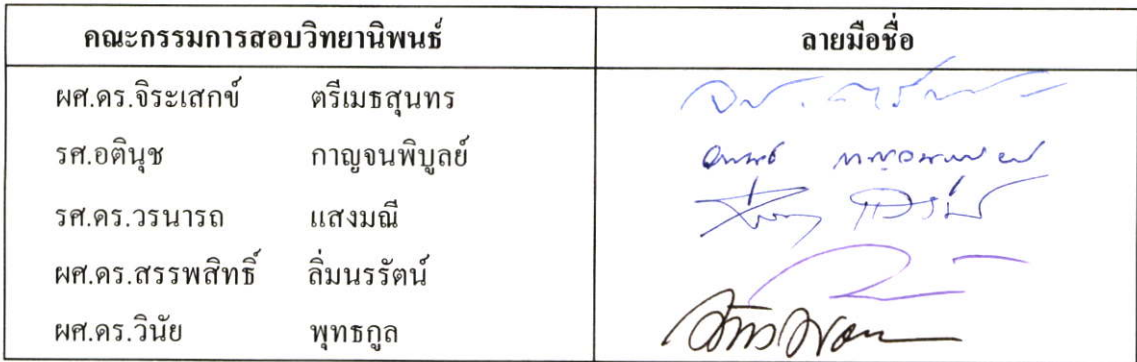 คณะกรรมการสอบวิทยานิพนธ์ ลายมือชื่อ
ผศ.ดร.จิระเสกข์ ตรีเมธสุนทร
รศ.อตินุช กาญจนพิบูลย์
รศ.ดร.วรนารถ แสงมณี
ผศ.ดร.สรรพสิทธิ์ ลิ่มนรรัตน์
ผศ.ดร.วินัย พุทธกูล